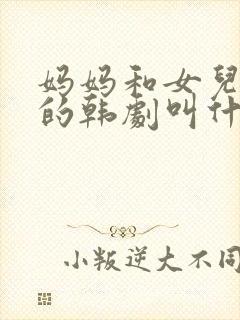 妈妈和女兒
的韩劇叫什
小叛逆大不同